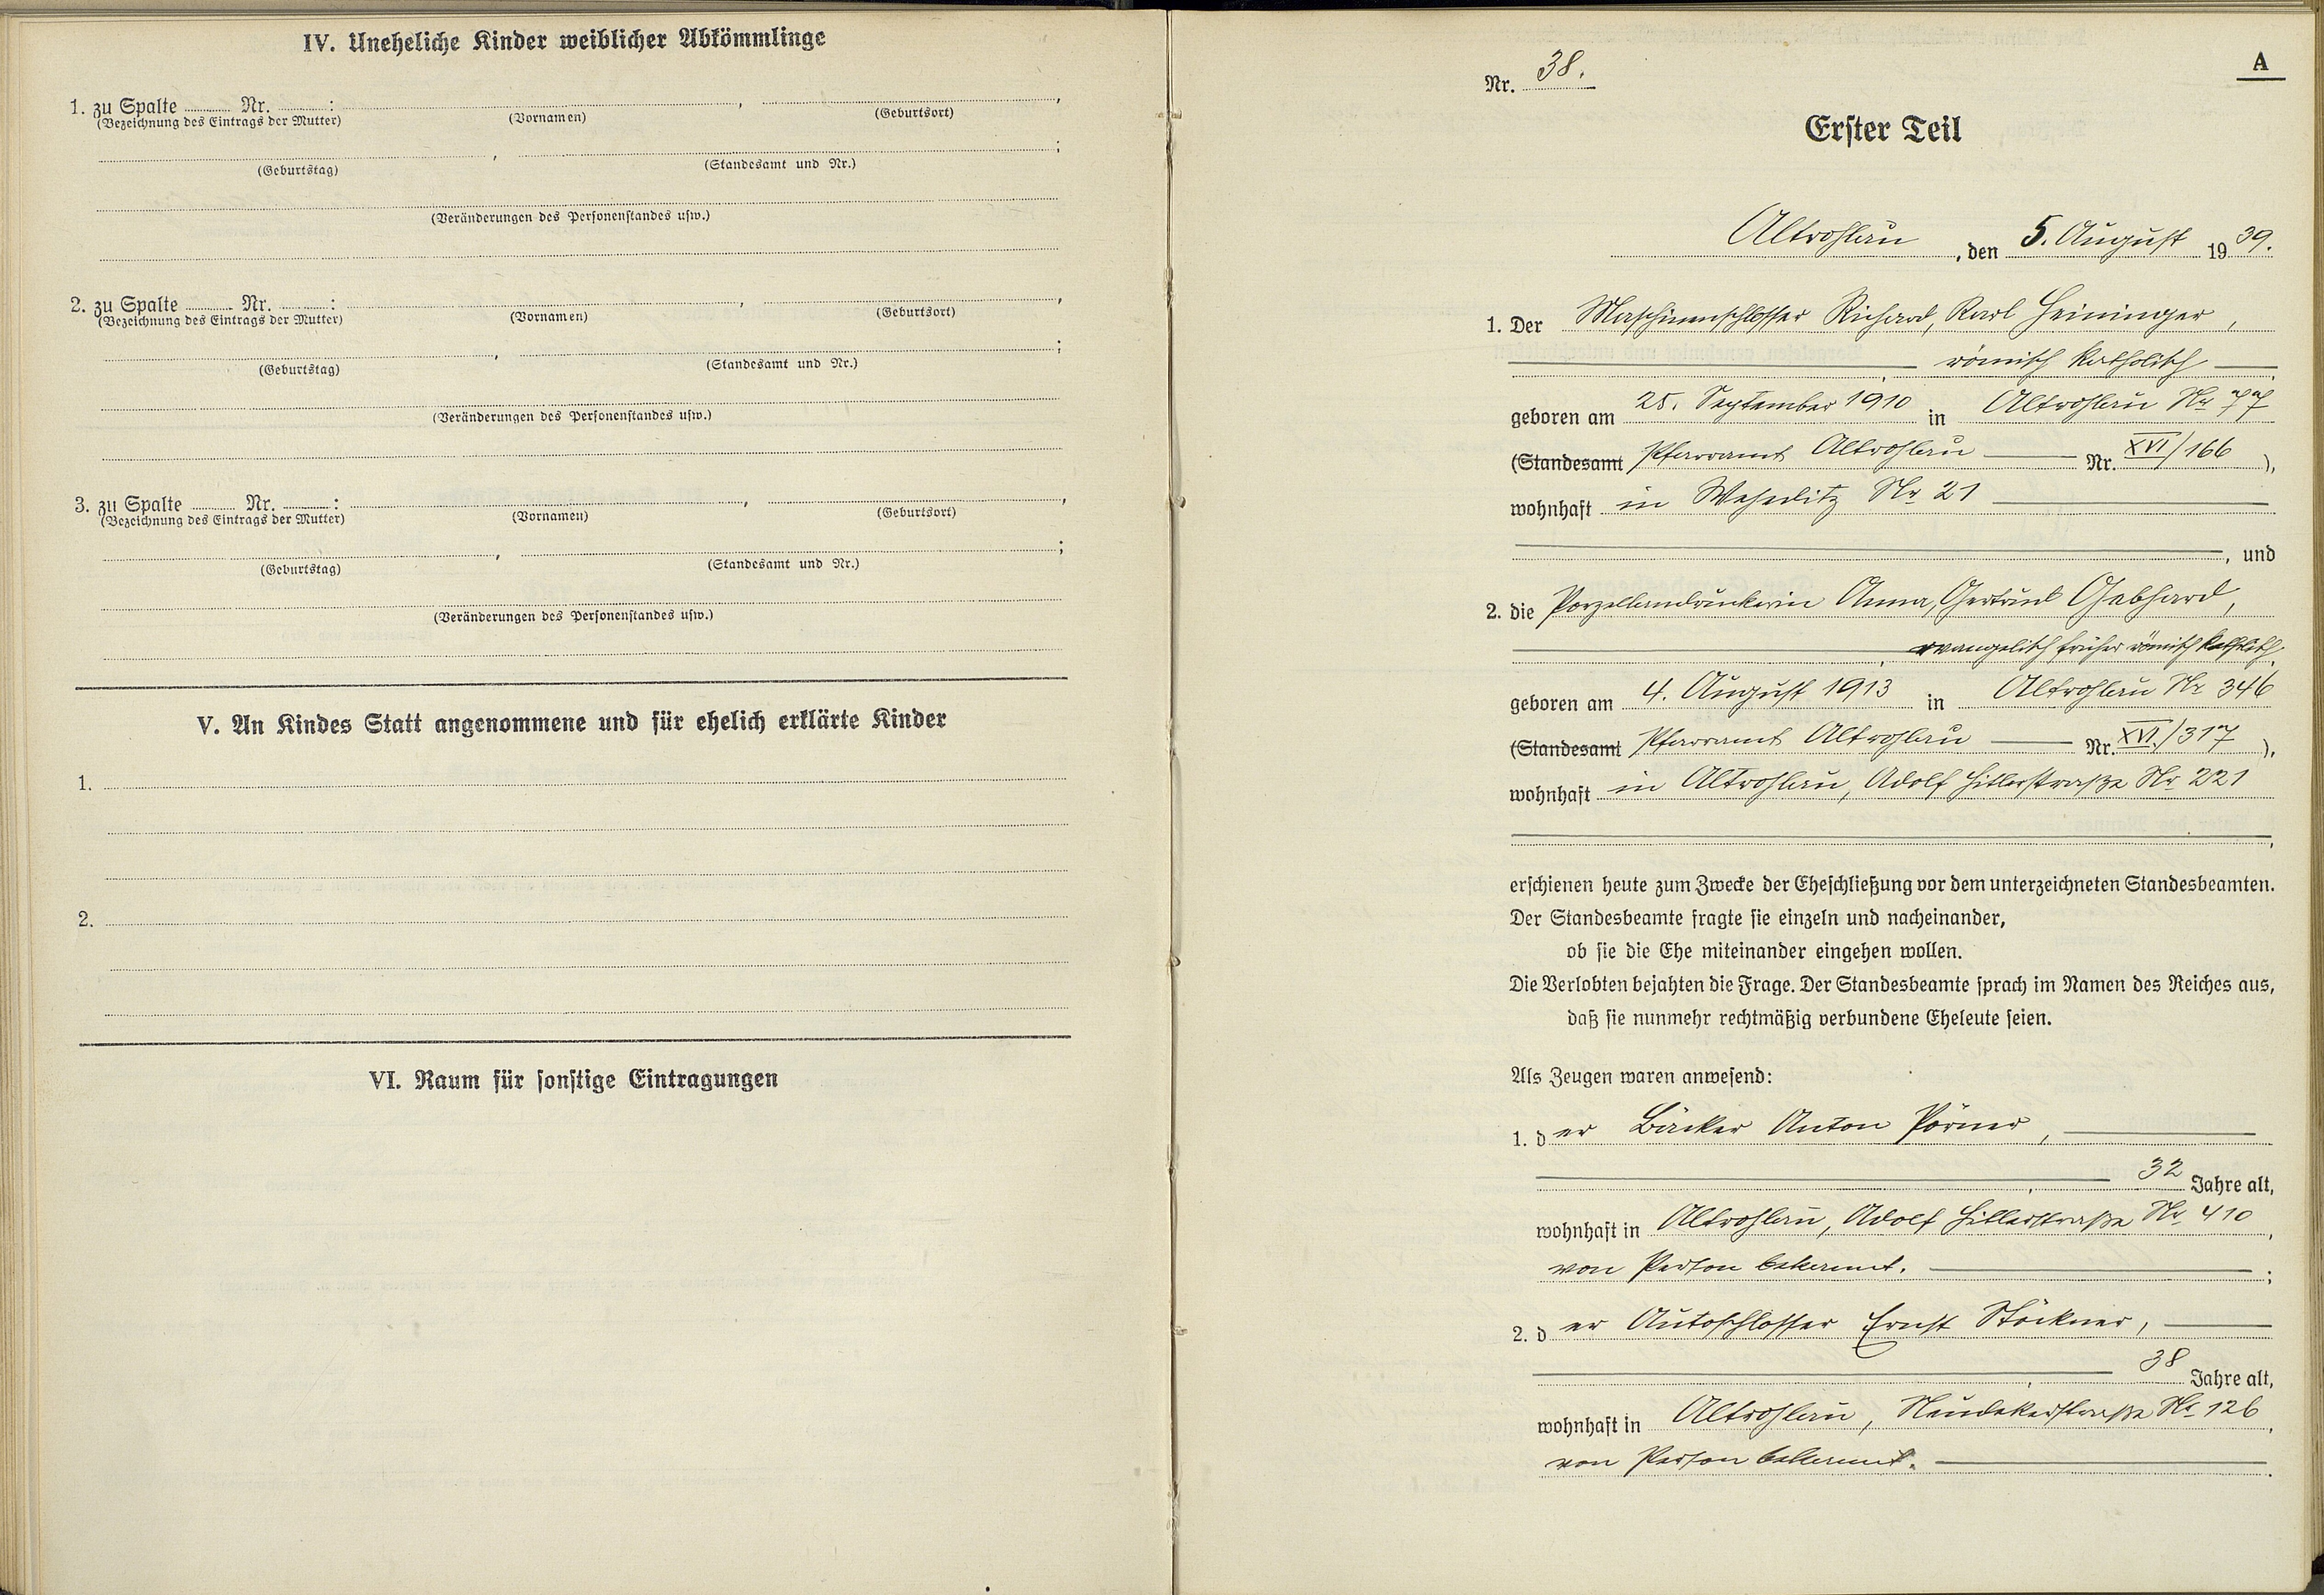 IV. Uneheliche Kinder weiblicher Abkömmlinge
1. zu Spalte ........ Nr. ........: ........, ........,
(Bezeichnung des Eintrags der Mutter) (Vornamen) (Geburtsort)
........, ........;
(Geburtstag) (Standesamt und Nr.)
(Veränderungen des Personenstandes usw.)
2. zu Spalte ........ Nr. ........: ........, ........,
(Bezeichnung des Eintrags der Mutter) (Vornamen) (Geburtsort)
........, ........;
(Geburtstag) (Standesamt und Nr.)
(Veränderungen des Personenstandes usw.)
3. zu Spalte ........ Nr. ........: ........, ........,
(Bezeichnung des Eintrags der Mutter) (Vornamen) (Geburtsort)
........, ........;
(Geburtstag) (Standesamt und Nr.)
(Veränderungen des Personenstandes usw.)
V. An Kindes Statt angenommene und für ehelich erklärte Kinder
1.
2.
VI. Raum für sonstige Eintragungen
A
Nr. 38.
Erster Teil
Altrohlau, den 5. August 1939.
1. Der Maschinenschlosser Richard, Karl Heininger,
römisch katholisch
geboren am 25. September 1910 in Altrohlau Nr 77
(Standesamt Pfarramt Altrohlau Nr. XVI/166),
wohnhaft in Weheditz Nr 21
, und
2. die Porzellandruckerin Anna, Gertrud Gebhard,
evangelisch früher römisch katholisch
geboren am 4. August 1913 in Altrohlau Nr 346
(Standesamt Pfarramt Altrohlau Nr. XVI./317),
wohnhaft in Altrohlau, Adolf Hitlerstraße Nr 221
erschienen heute zum Zwecke der Eheschließung vor dem unterzeichneten Standesbeamten.
Der Standesbeamte fragte sie einzeln und nacheinander,
ob sie die Ehe miteinander eingehen wollen.
Die Verlobten bejahten die Frage. Der Standesbeamte sprach im Namen des Reiches aus,
daß sie nunmehr rechtmäßig verbundene Eheleute seien.
Als Zeugen waren anwesend:
1. der Bäcker Anton Pörner,
32 Jahre alt,
wohnhaft in Altrohlau, Adolf Hitlerstraße Nr 410,
von Person bekannt.;
2. der Autoschlosser Ernst Stöckner,
38 Jahre alt,
wohnhaft in Altrohlau, Neudekerstraße Nr 126,
von Person bekannt.